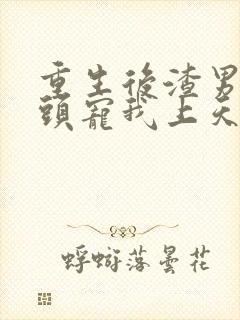 重生後渣男
頭寵我上天
蜉蝣落曇花